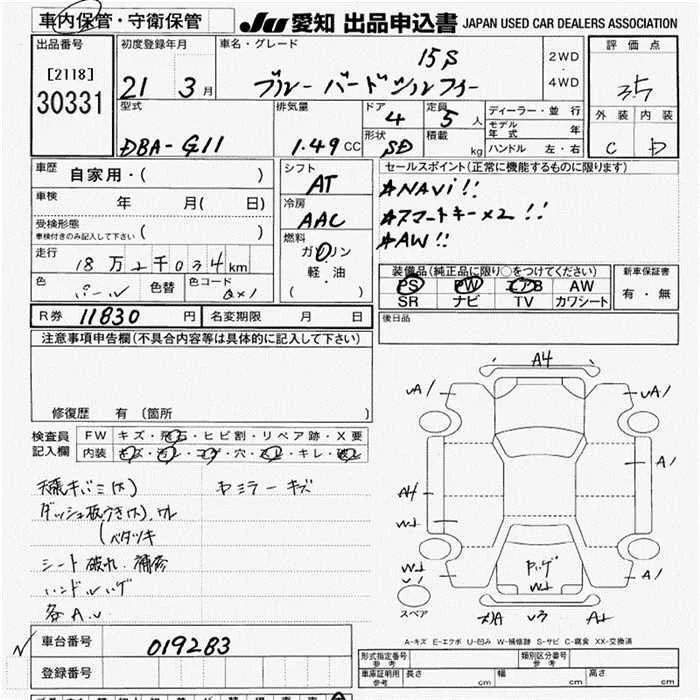 車内保管・守衛保管 JU 愛知 出品申込書 JAPAN USED CAR DEALERS ASSOCIATION
出品番号 初度登録年月 車名・グレード 評価点
[2118] 15S 2WD・4WD 3.5
30331 21 3月 ブルーバードシルフィー
外装 内装
C D
型式 排気量 ドア 定員 ディーラー・並行
4 5人 モデル年式 年
DBA-G11 1.49CC 形状 SD 積載 kg ハンドル 左・右
車歴 自家用・( ) シフト AT セールスポイント(正常に機能するものに限ります)
車検 年 月( 日) 冷房 AAC ☆NAVi!!
受検形態 ☆スマートキー×2!!
車検付きのみ記入して下さい( ) 燃料 ☆AW!!
走行 18万2千034km ガソリン
軽・油
( )
色 パール 色替 色コード QX1
装備品(純正品に限り○をつけてください) 新車保証書
PS PW エアB AW 有・無
SR ナビ TV カワシート
R券 11830円 名変期限 月 日 後日品
注意事項申告欄(不具合内容等は具体的に記入して下さい)
修復歴 有 (箇所 )
検査員記入欄 FW キズ・飛石・ヒビ割・リペア跡・X要
内装 キズ・汚レ・コゲ・穴・スレ・キレ・破レ
シート破れ、補修
ハンドルハゲ
各A.U
ヤミラーキズ
A4
UA/ UA/
A/
A4
W+
A/ A/
スペア
A-キズ E-エクボ U-凹み W-補修跡 S-サビ C-腐食 XX-交換済
車台番号 019283
登録番号
形式指定番号 参考 類別区分番号 参考
車庫証明用 参考 長さ cm 幅 cm 高さ cm